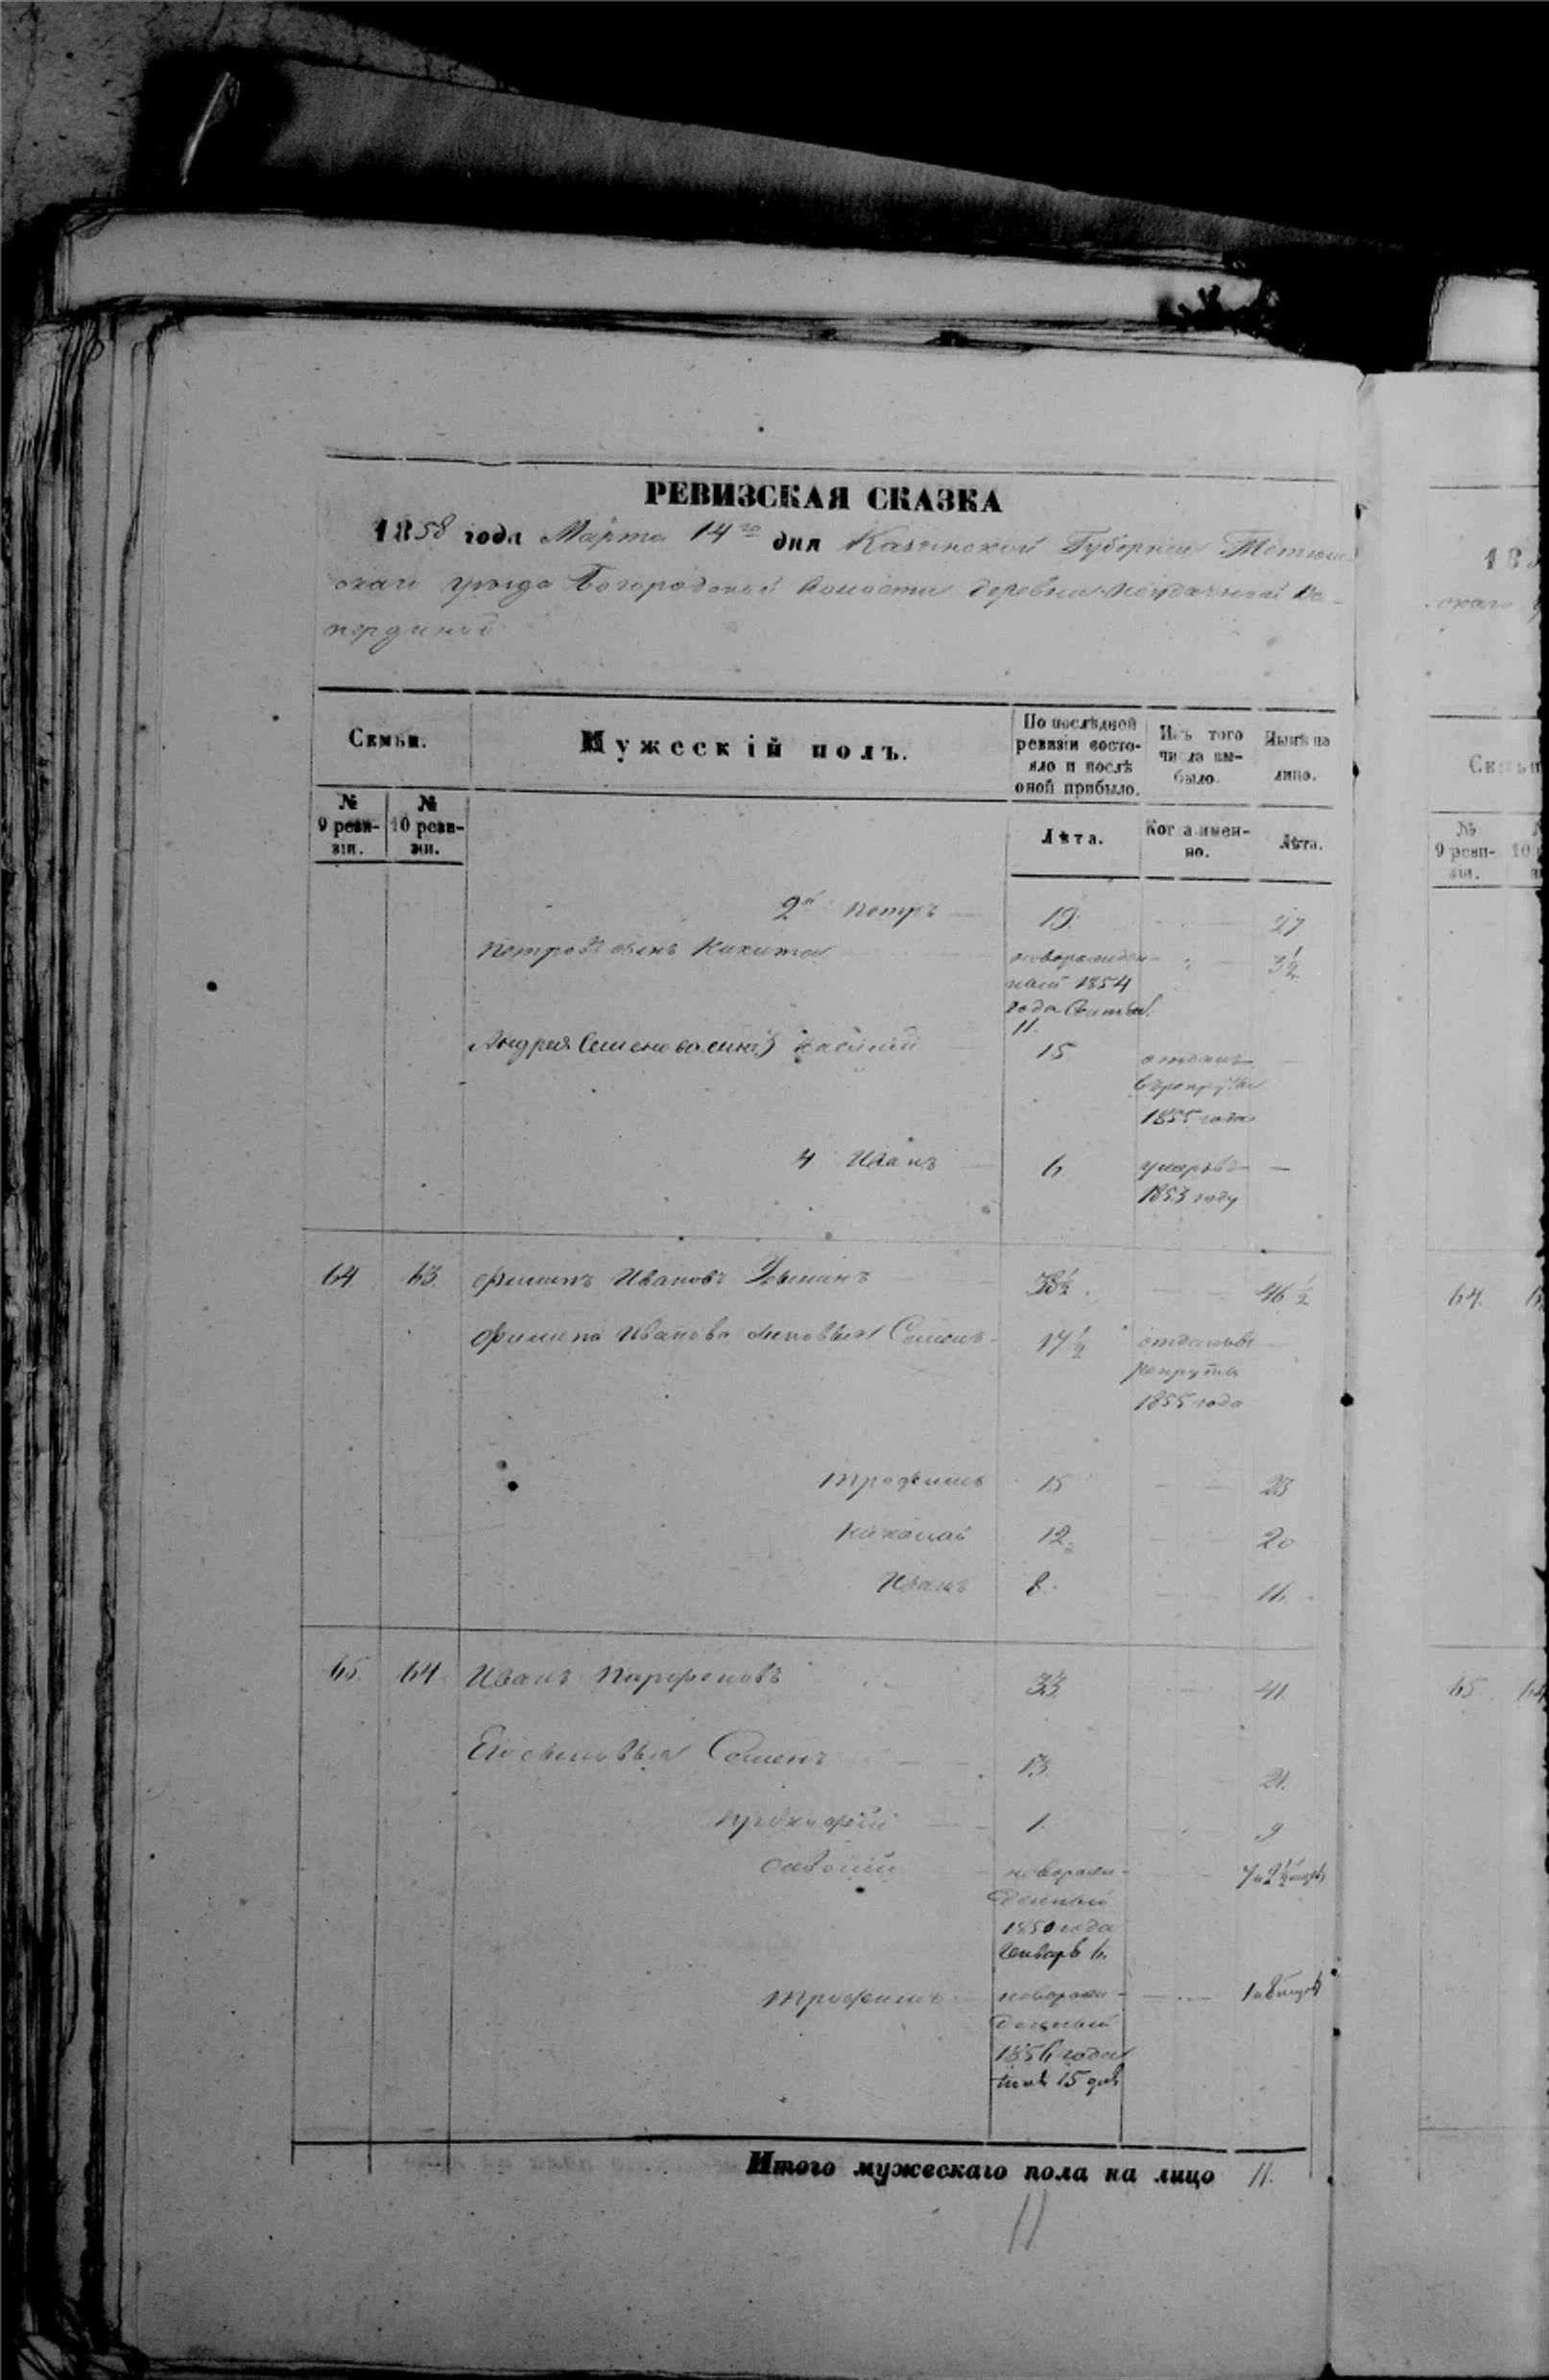 РЕВИЗСКАЯ СКАЗКА
1858 года Марта 14го дня Казанской Губернии Тетюш-
скаго уезда Богородской волости деревни
Семьи. Мужескій полъ. По послѣдней ревизіи состояло и послѣ оной прибыло. Изъ того числа выбыло. Нынѣ на лицо.
№ 9 ревизіи. № 10 ревизіи. Лѣта. Когда именно. Лѣта.
2й Петръ 19. 27
Петровъ сынъ Никита новорожден- 3½
ный 1854
года
11.
Андрея Семенова сынъ 3 15 отданъ
в рекруты
1855 года
4 Иванъ 6 умеръ въ —
1853 году
64 63. Филипъ Ивановъ 38½. 46½
Филипа Иванова сыновья Семенъ 17½ отданъ въ
рекруты
1855 года
Трофимъ 15 23
Николай 12. 20
Иванъ 8. 16.
65. 64 Иванъ Парфеновъ 33. 41
Его сыновья Семенъ 13. 21.
Прокофей 1. 9
новорож- 7 и 2½ мцов
денный
1850 года
Генваря 6.
Трофимъ новорож- 1 и 8 мцов
денный
1856 года
15 дня
Итого мужескаго пола на лицо 11.
11
18
скаго
Семьи
№ 9 ревизіи. 10
64.
65 64